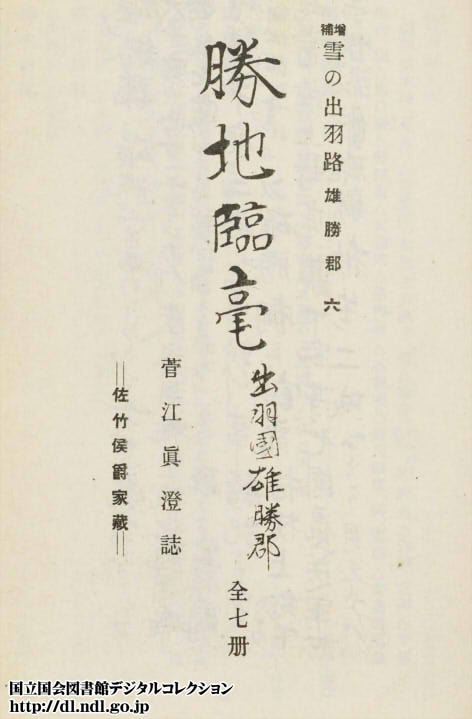 増補
雪の出羽路 雄勝郡 六
勝地臨毫 出羽國雄勝郡 全七册
菅江眞澄誌
＝佐竹侯爵家蔵＝
国立国会図書館デジタルコレクション
http://dl.ndl.go.jp